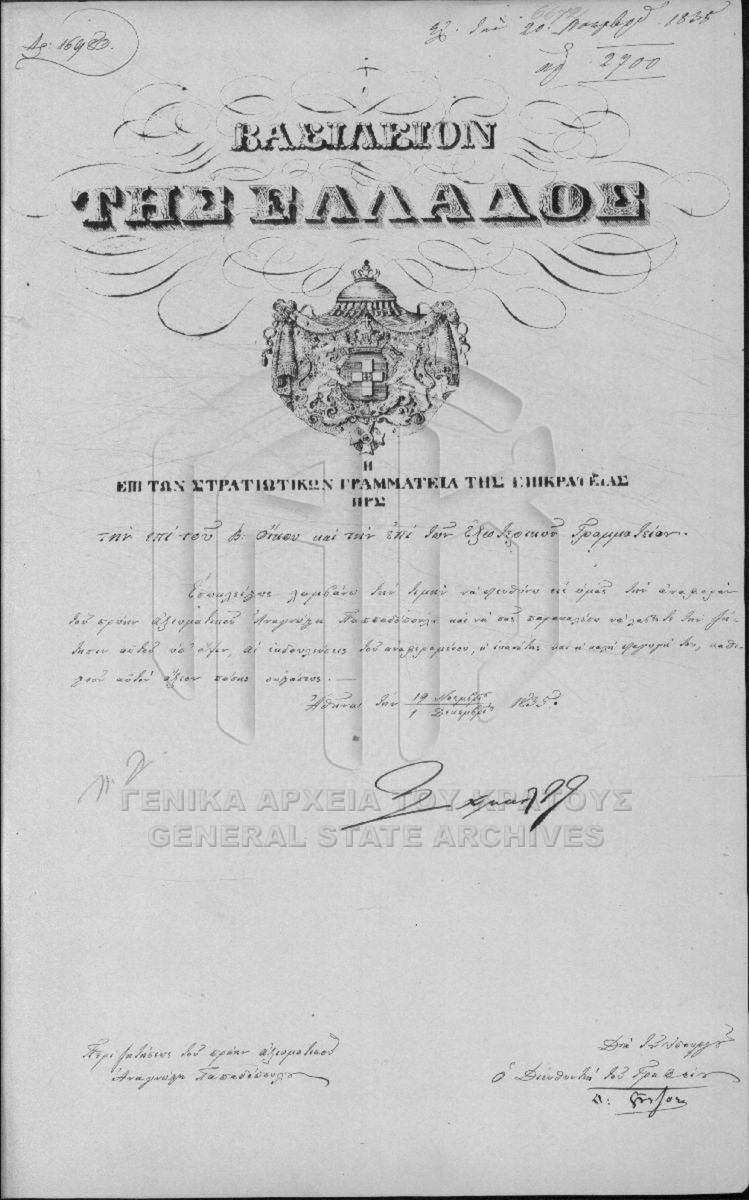 Αρ: 1698
20. Νοεμβρ 1835
2700
ΒΑΣΙΛΕΙΟΝ
ΤΗΣ ΕΛΛΑΔΟΣ
Η
ΕΠΙ ΤΩΝ ΣΤΡΑΤΙΩΤΙΚΩΝ ΓΡΑΜΜΑΤΕΙΑ ΤΗΣ ΕΠΙΚΡΑΤΕΙΑΣ
ΠΡΣ
την επί του Β. Οίκου και την επί των Εξωτερικών Γραμματείαν.
Εσωκλείστως λαμβάνω την τιμήν να διευθύνω εις υμάς την αναφοράν
του πρώην αξιωματικού Αναγνώστη Παπαδόπουλου και να σας παρακαλέσω να λάβητε την αί-
τησιν αυτού υπ' όψιν, αι εκδουλεύσεις του αναφερομένου, η ικανότης και η καλή διαγωγή του, καθι-
στούν αυτόν άξιον πάσης
Αθήναι την 19 Νοεμβρίου / 1 Δεκεμβρίου 1835.
ΓΕΝΙΚΑ ΑΡΧΕΙΑ ΤΟΥ ΚΡΑΤΟΥΣ
GENERAL STATE ARCHIVES
Περί αιτήσεως του πρώην αξιωματικού
Αναγνώστη Παπαδόπουλου
Διά τον υπουργόν
Ο Διευθυντής του Γραφείου